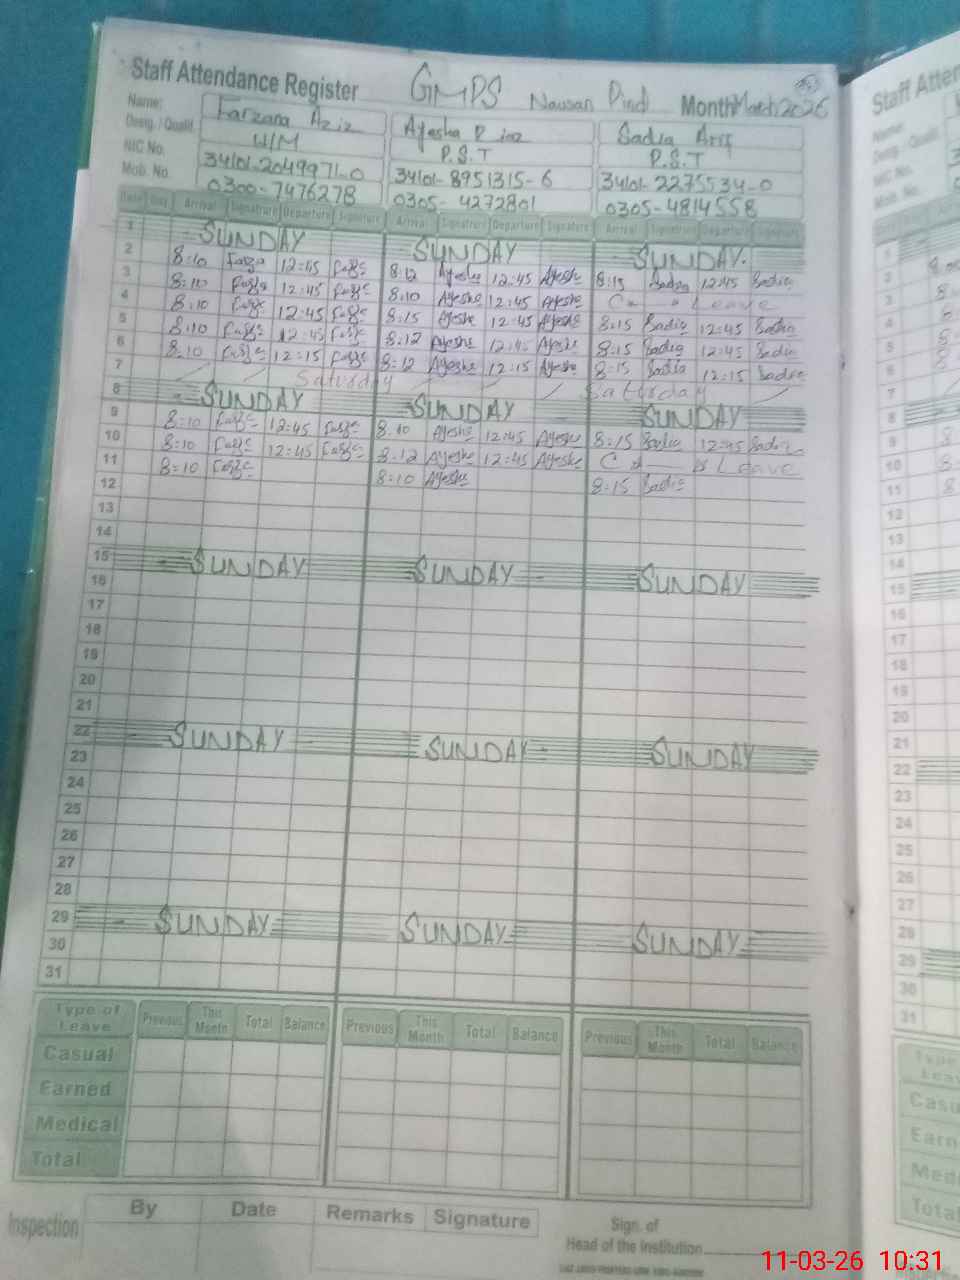 Staff Attendance Register GMPS Nousan Pindi Month March 2026
Name: Farzana Aziz Ayesha Riaz Sadia Arif
Desig. / Qualif. H/M P.S.T P.S.T
NIC No. 34101-2049971-0 34101-8951315-6 34101-2275534-0
Mob. No. 0300-7476278 0305-4272801 0305-4814558
Date Day Arrival Signature Departure Signature Arrival Signature Departure Signature Arrival Signature Departure Signature
1 SUNDAY SUNDAY SUNDAY.
2 8:10 12:45 8:12 Ayesha 12:45 Ayesha 8:15 Sadia 12:45 Sadia
3 8:10 12:45 8:10 Ayesha 12:45 Ayesha Leave
4 8:10 12:45 8:15 Ayesha 12:45 Ayesha 8:15 Sadia 12:45 Sadia
5 8:10 12:45 8:12 Ayesha 12:45 Ayesha 8:15 Sadia 12:45 Sadia
6 8:10 12:15 8:12 Ayesha 12:15 Ayesha 8:15 Sadia 12:15 Sadia
7 Saturday Saturday
8 SUNDAY SUNDAY SUNDAY
9 8:10 12:45 8:10 Ayesha 12:45 Ayesha 8:15 Sadia 12:45 Sadia
10 8:10 12:45 8:12 Ayesha 12:45 Ayesha Leave
11 8:10 8:10 Ayesha 8:15 Sadia
12
13
14
15 SUNDAY SUNDAY SUNDAY
16
17
18
19
20
21
22 SUNDAY SUNDAY SUNDAY
23
24
25
26
27
28
29 SUNDAY SUNDAY SUNDAY
30
31
Type of Leave Previous This Month Total Balance Previous This Month Total Balance Previous This Month Total Balance
Casual
Earned
Medical
Total
Inspection By Date Remarks Signature
Sign. of
Head of the Institution
11-03-26 10:31